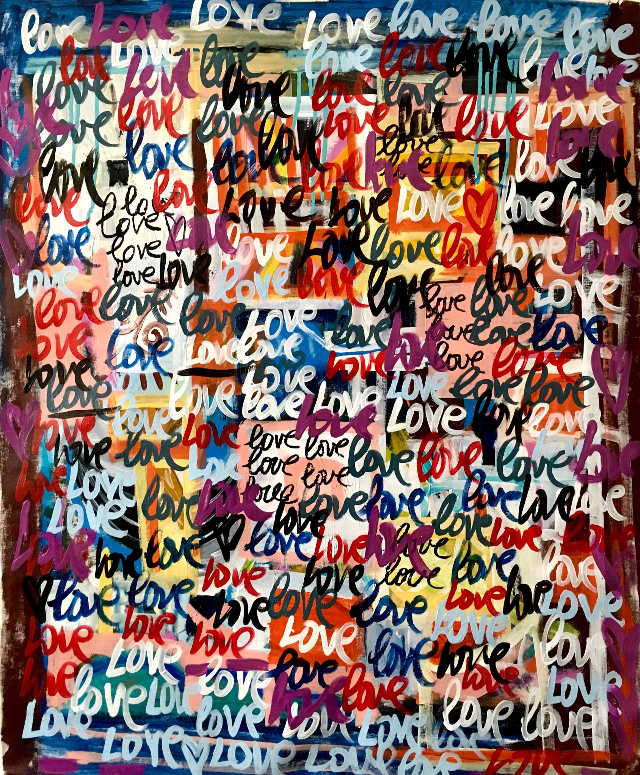 love Love LOVE LOVE love love love
love LOVE love love love love love
love love love love love love
love love love love love love love
love love love love love love love
love love love love love love
love love love love LOVE love love
love love love love love love love
love love love love love
LOVE love love love love love
love love love love love love LOVE
love love LOVE love love love love
love love LOVE love love love
love love love LOVE love love love
love love love love LOVE love love
love love love love love love love
love love love love love love
LOVE love love love love love love
LOVE love love love love love love
love love love love love love love
love love love love love
love love love love love love LOVE
love love love LOVE love LOVE
love LOVE love love love love
love love love love love love
LOVE love LOVE love love love
LOVE LOVE LOVE love love